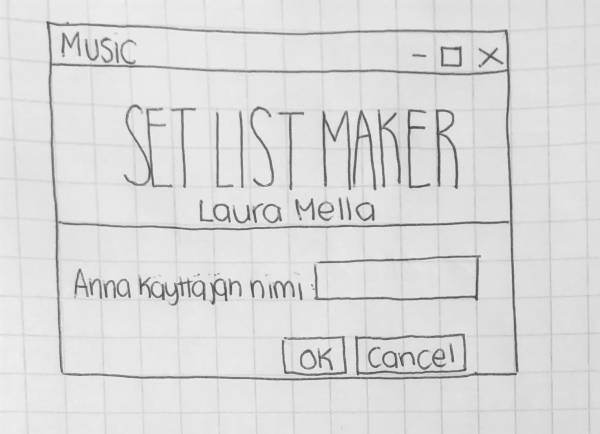 Music
SET LIST MAKER
Laura Mella
Anna käyttäjän nimi:
OK Cancel